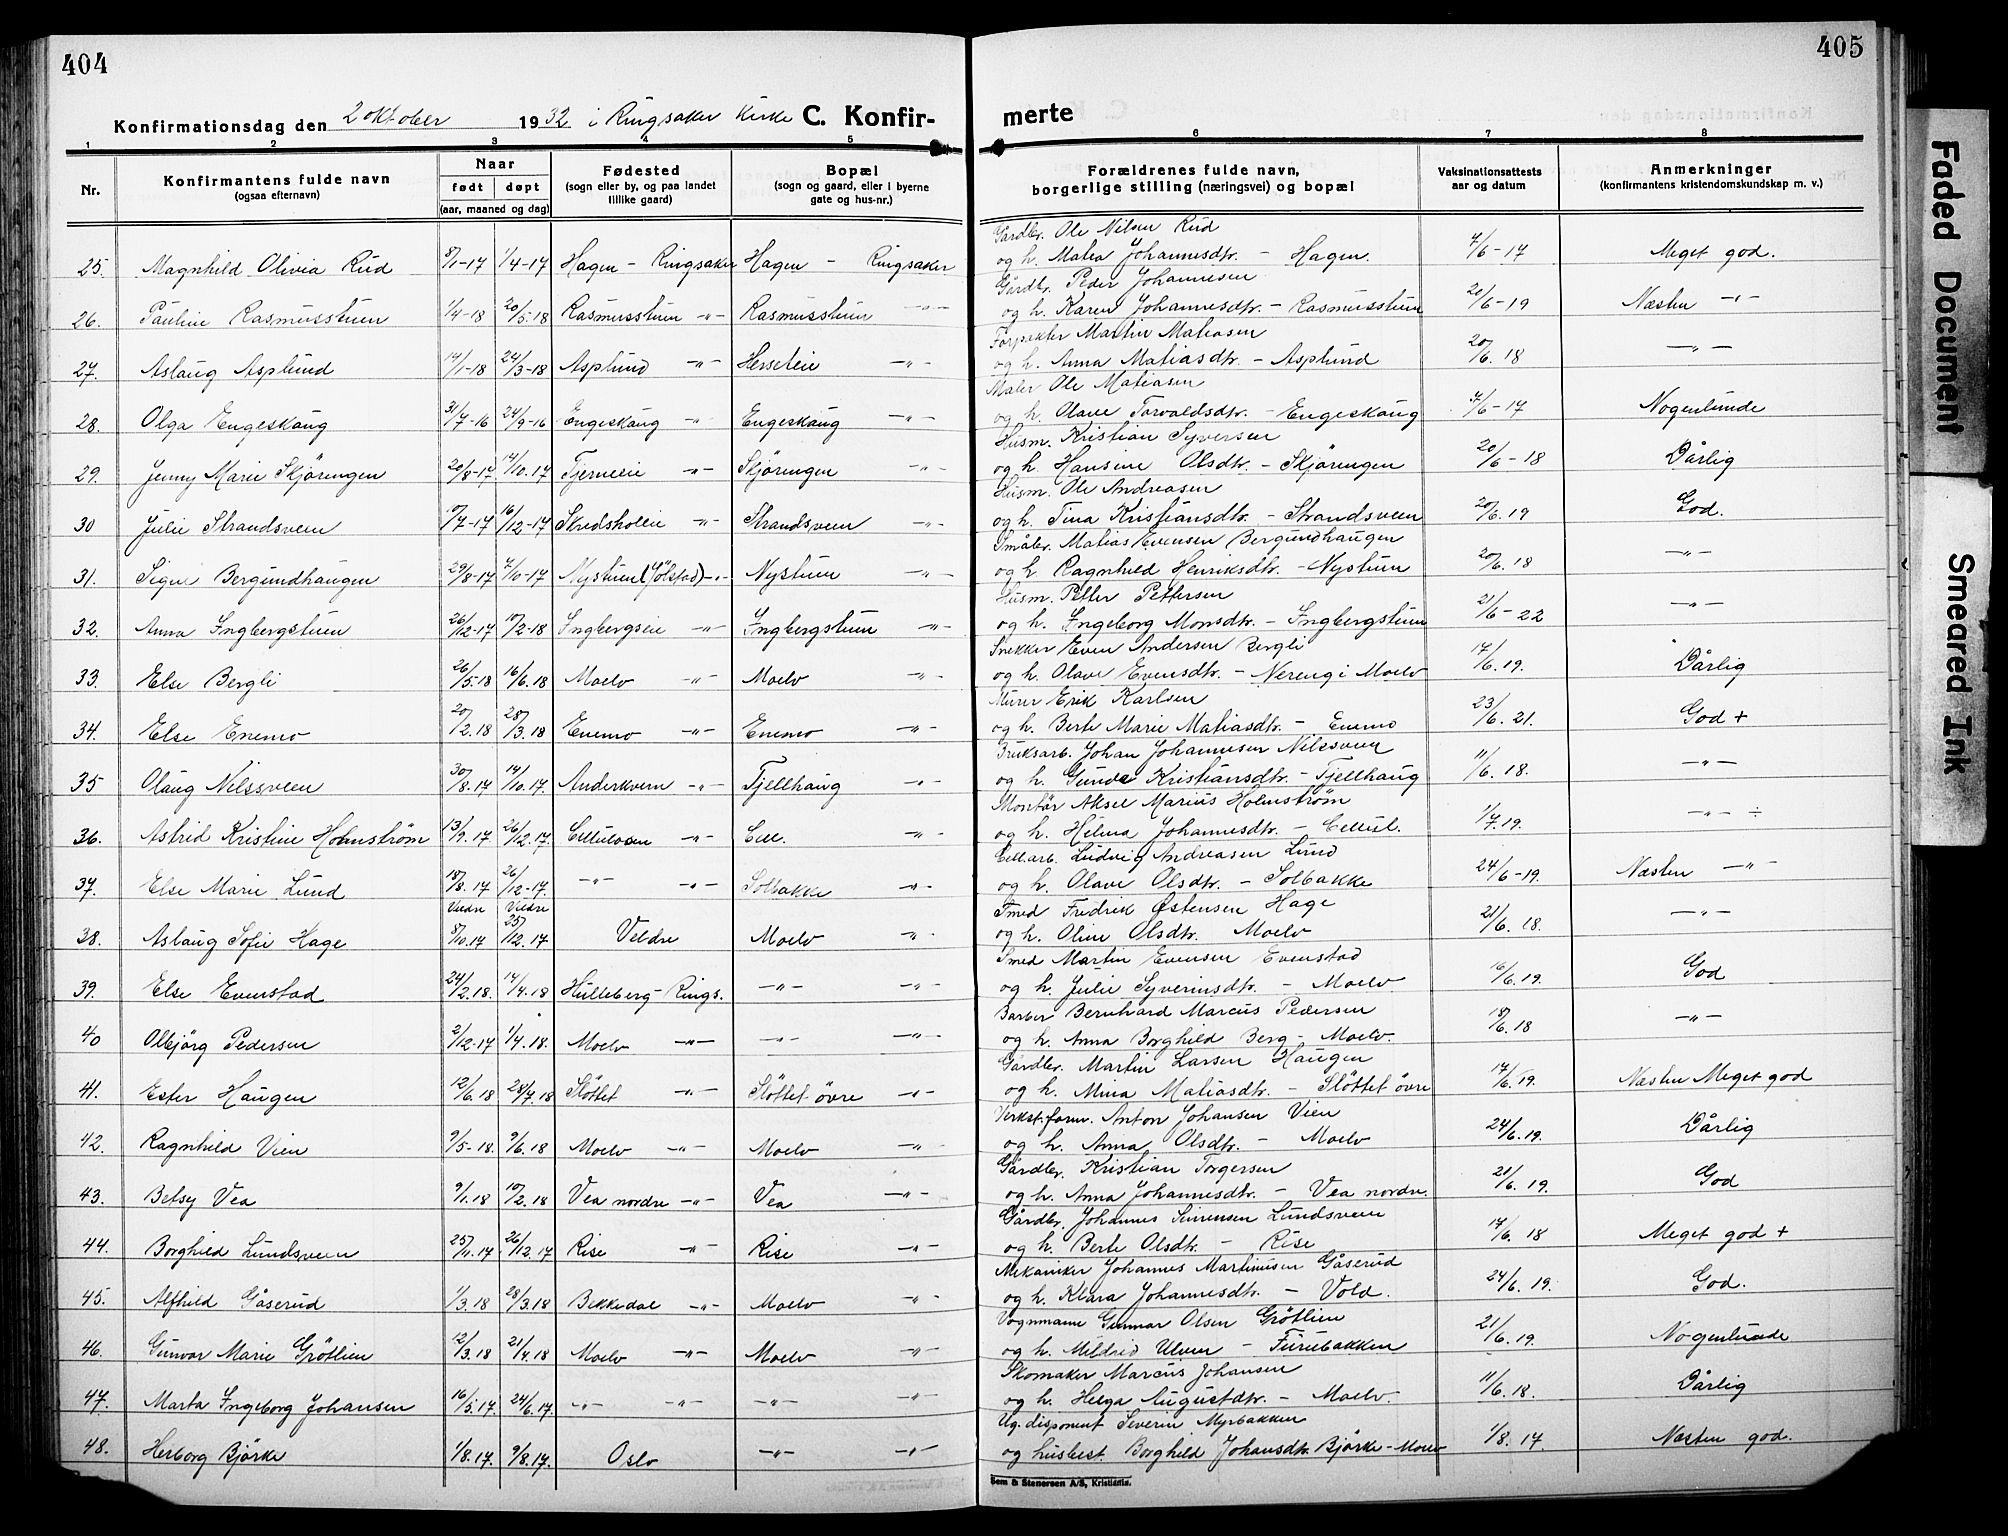 404
405
Konfirmationsdag den 2 oktober 1932 i Ringsaker Kirke C. Konfir-
merte
1 2 3 4 5 6 7 8
Nr. Konfirmantens fulde navn (ogsaa efternavn) Naar født døpt (aar, maaned og dag) Fødested (sogn eller by, og paa landet tillike gaard) Bopæl (sogn og gaard, eller i byerne gate og hus-nr.) Forældrenes fulde navn, borgerlige stilling (næringsvei) og bopæl Vaksinationsattests aar og datum Anmerkninger (konfirmantens kristendomskundskap m. v.)
Gårdbr. Ole Nilsen Rud
25. Magnhild Olivia Rud 8/1-17 1/4-17 Hagen - Ringsaker Hagen - Ringsaker og h. Matea Johannesdtr. - Hagen. 7/6-17 Meget god.
Gårdbr. Peder Johannesen
26. Pauline Rasmusstuen 1/4-18 20/5-18 Rasmusstuen -"- Rasmusstuen -"- og h. Karen Johannesdtr. - Rasmusstuen 20/6-19 Næsten -"-
Forpakter Martin Matiasen
27. Aslaug Asplund 14/1-18 24/3-18 Asplund -"- Herseteie -"- og h. Anna Matiasdtr. - Asplund 20/6.18 -"-
Maler Ole Matiasen
28. Olga Engeskaug 31/7-16 24/9-16 Engeskaug -"- Engeskaug -"- og h. Olave Torvaldsdtr. - Engeskaug 7/6-17 Nogenlunde
Husm. Kristian Syversen
29. Jenny Marie Skjørengen 20/8-17 14/10.17 Tjerneeie -"- Skjørengen -"- og h. Hansine Olsdtr. - Skjørengen 20/6-18 Dårlig
Husm. Ole Andreasen
30 Julie Strandsveen 9/7-17 16/12-17 Skredsholeie -"- Strandsveen -"- og h. Tina Kristiansdtr. - Strandsveen 20/6.19 God.
Småbr. Matias Evensen Bergundhaugen
31. Signe Bergundhaugen 29/8-17 7/10-17 Nystuen (Jølstad) -"- Nystuen -"- og h Ragnhild Henriksdtr. - Nystuen 20/6.18 -"-
Husm. Petter Pettersen
32. Anna Ingbergstuen 26/12-17 17/2-18 Ingbergseie -"- Ingbergstuen -"- og h. Ingeborg Monsdtr. - Ingbergstuen 21/6-22 -"-
Snekker Even Andersen Bergli
33. Else Bergli 26/5.18 16/6.18 Moelv -"- Moelv -"- og h. Olave Evensdtr. - Nereng i Moelv 17/6.19. Dårlig
Murer Erik Karlsen
34. Else Enemo 20/2.18 28/3.18 Enemo -"- Enemo -"- og h. Berte Marie Matiasdtr. - Enemo 23/6.21. God +
Bruksarb. Johan Johannesen Nilssveen
35 Olaug Nilssveen 30/8.17 14/10.17. Anderkvern -"- Fjellhaug -"- og h. Gunda Kristiansdtr. - Fjellhaug 11/6.18. -"-
Montör Aksel Marius Holmstrøm
36. Astrid Kristine Holmstrøm 13/9.17 26/12.17. Cellulosen -"- Cell. -"- og h. Hilma Johannesdtr. - Cellul. 1/7.19. -"- ÷
Cell.arb. Ludvig Andreasen Lund
37. Else Marie Lund 18/8.17 26/12-17. -"- -"- Solbakke -"- og h. Olave Olsdtr. - Solbakke 24/6-19. Næsten -"-
Veldre Veldre Smed Fredrik Østensen Hage
38. Aslaug Sofie Hage 8/10.17 25/12.17 Veldre Moelv -"- og h. Oline Olsdtr. Moelv 21/6.18. -"-
Smed Martin Evensen Evenstad
39. Else Evenstad 24/2.18. 14/4.18 Hulleberg - Rings. -"- -"- og h. Julie Syverinsdtr. - Moelv 16/6.19. God
Barber Bernhard Marcus Pedersen
40 Olbjörg Pedersen 2/12-17 1/4.18. Moelv -"- -"- -"- og h. Anna Borghild Berg - Moelv. 18/6.18 -"-
Gårdbr. Martin Larsen Haugen
41. Ester Haugen 12/6.18 28/7.18 Slöttet -"- Slöttet övre -"- og h. Mina Matiasdtr. - Slöttet övre 17/6.19. Næsten Meget god
Verkst.form. Anton Johansen Vien
42. Ragnhild Vien 9/5-18. 9/6.18 Moelv -"- Moelv -"- og h. Anna Olsdtr. - Moelv 24/6.19. Dårlig
Gårdbr. Kristian Torgersen
43. Betsy Vea 9/1.18 17/2.18 Vea nordre -"- Vea -"- og h. Anna Johannesdtr. - Vea nordre. 21/6.19. God
Gårdbr. Johannes Simensen Lundsveen
44. Borghild Lundsveen 25/11.17 26/12.17 Rise -"- Rise -"- og h. Berte Olsdtr. - Rise 17/6.18 Meget god +
Mekaniker Johannes Martinusen Gåserud
45. Alfhild Gåserud 1/3.18 28/3.18 Bekkedal -"- Moelv -"- og h. Klara Johannesdtr. - Vold. 24/6.19. God.
Vognmann Gunnar Olsen Grötlien
46. Gunvor Marie Grötlien 12/3.18 21/4.18 Moelv -"- Moelv -"- og h. Mildrid Ulven - Furubakken 21/6.19. Nogenlunde
Skomaker Marcus Johansen
47. Marta Ingeborg Johansen 16/5.17. 24/6.17. -"- -"- -"- -"- og h. Helga Augustdtr. - Moelv. 11/6.18. Dårlig
Ug. disponent Severin Myrbakken
48. Herborg Bjørke 1/8.17. 9/8.17. Oslo -"- -"- og husbest. Borghild Johansdtr. Bjørke - Moelv 1/8.17. Næsten god.
Sem & Stenersen A/S, Kristiania.
Faded Document
Smeared Ink